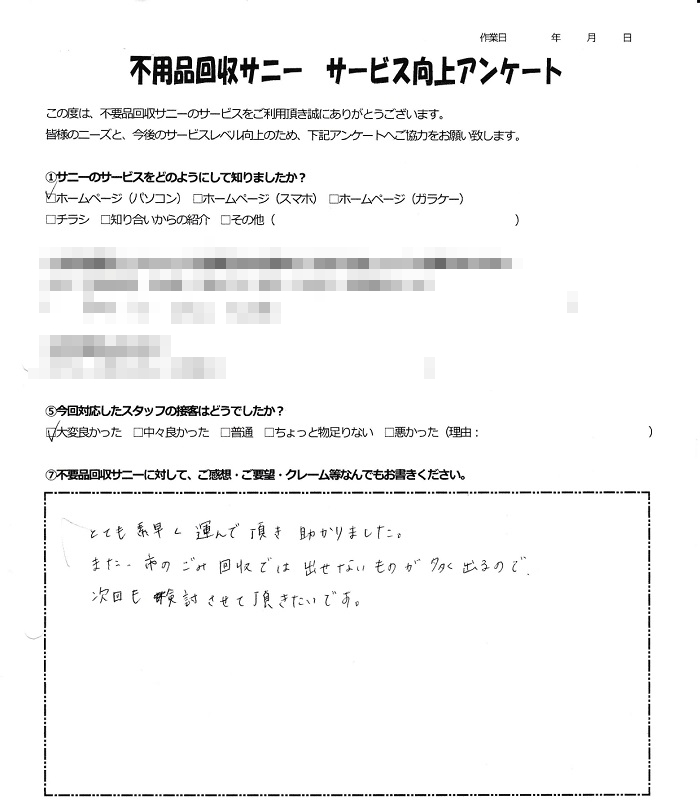 作業日 年 月 日
不用品回収サニー サービス向上アンケート
この度は、不要品回収サニーのサービスをご利用頂き誠にありがとうございます。
皆様のニーズと、今後のサービスレベル向上のため、下記アンケートへご協力をお願い致します。
①サニーのサービスをどのようにして知りましたか？
☑ホームページ（パソコン） □ホームページ（スマホ） □ホームページ（ガラケー）
□チラシ □知り合いからの紹介 □その他（ ）
⑤今回対応したスタッフの接客はどうでしたか？
☑大変良かった □中々良かった □普通 □ちょっと物足りない □悪かった（理由： ）
⑦不要品回収サニーに対して、ご感想・ご要望・クレーム等なんでもお書きください。
とても素早く運んで頂き助かりました。
また、市のごみ回収では出せないものが多く出るので、
次回も検討させて頂きたいです。